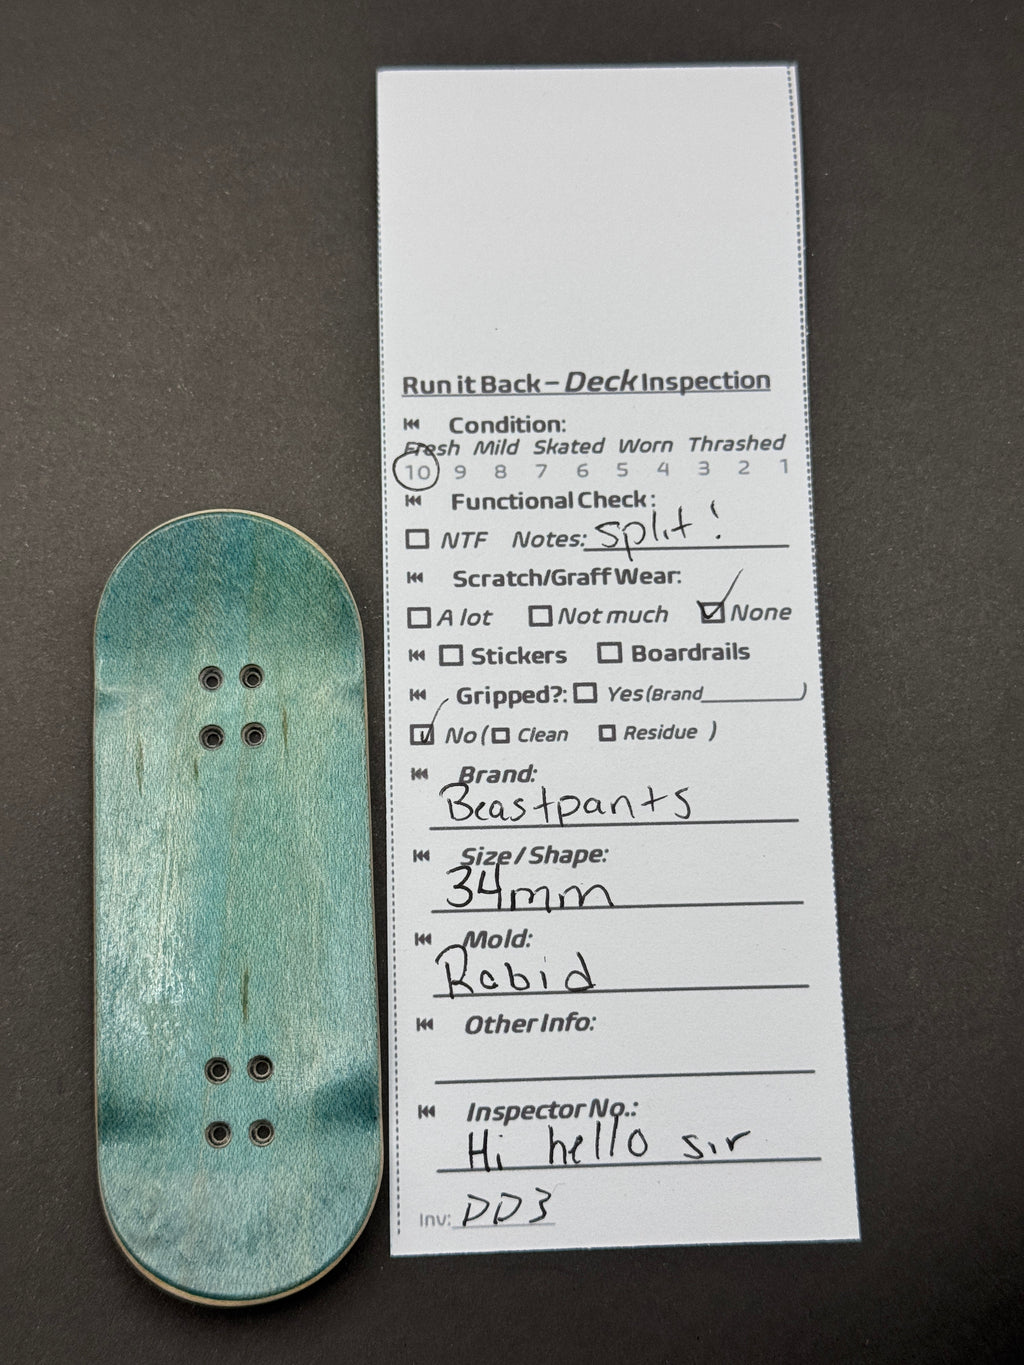 Run it Back – Deck Inspection
Condition:
Fresh Mild Skated Worn Thrashed
10 9 8 7 6 5 4 3 2 1
Functional Check:
NTF Notes: split!
Scratch/Graff Wear:
A lot Not much None
Stickers Boardrails
Gripped?: Yes (Brand________)
No ( Clean Residue )
Brand:
Beastpants
Size / Shape:
34mm
Mold:
Rabid
Other Info:
Inspector No.:
Hi hello sir
Inv: DD3